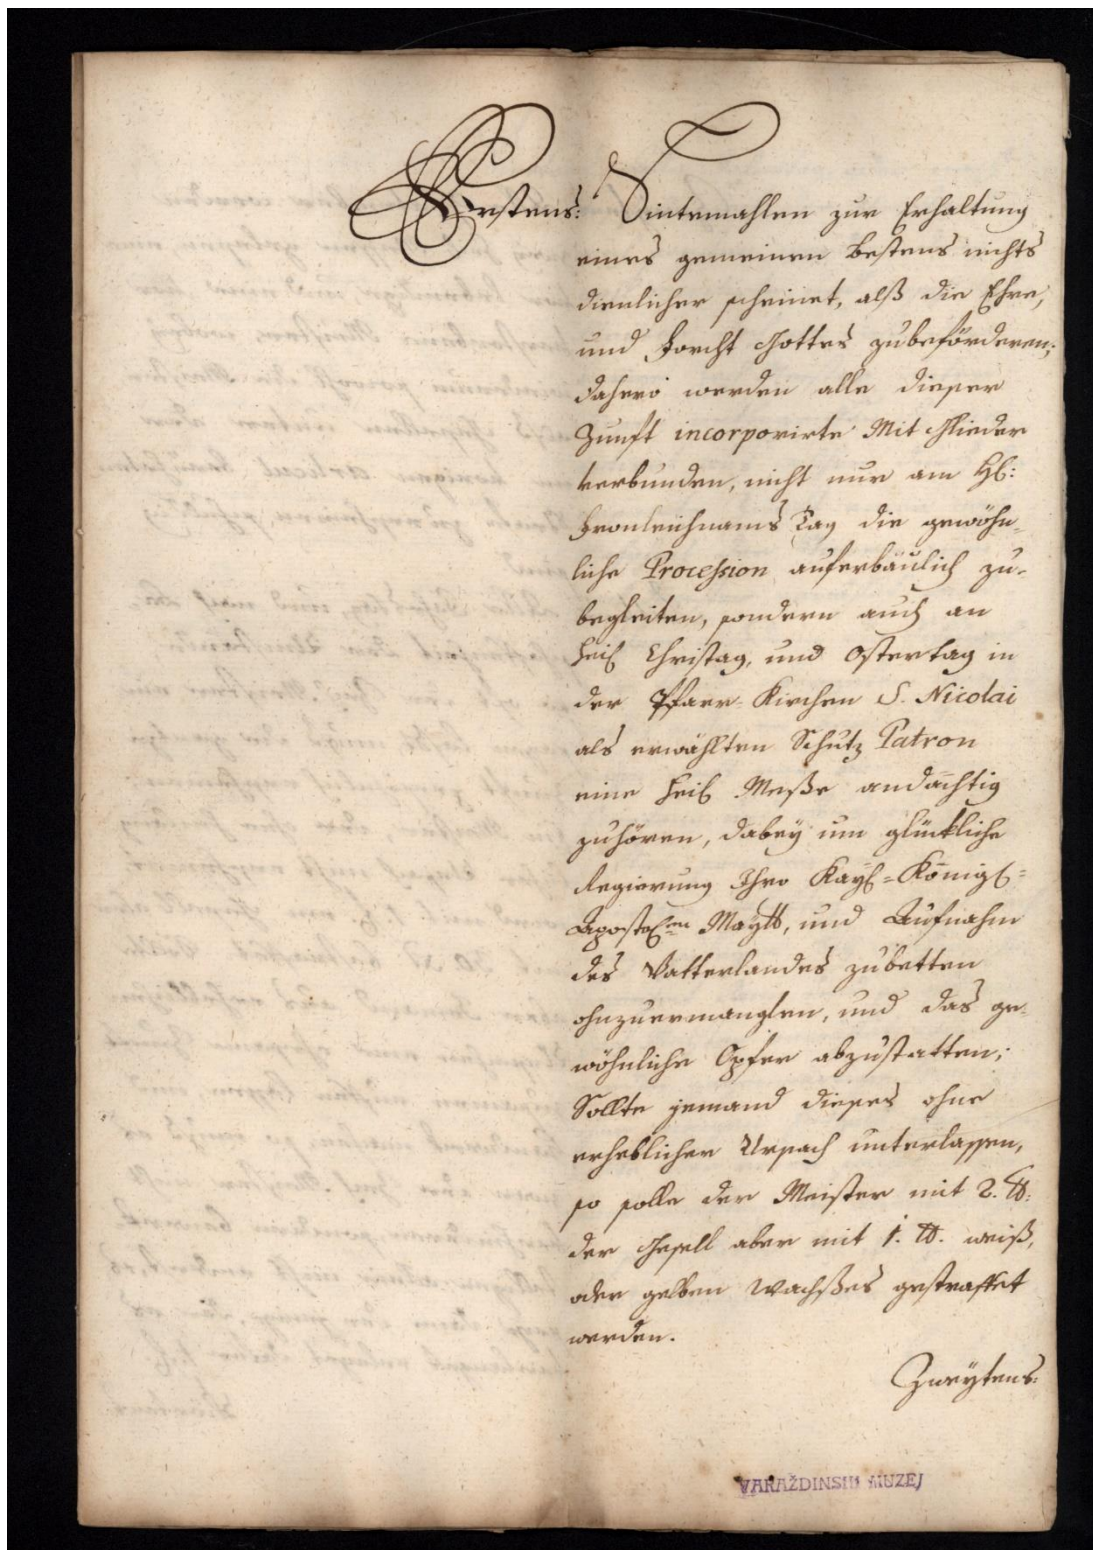 Erstens: Sintemahlen zur Erhaltung
eines gemeinen Bestens nichts
dienlicher scheinet, alß die Ehre,
und Forcht Gottes zubeförderen;
dahero werden alle dieser
Zunft incorporirte Mit Glieder
verbunden, nicht nur am Hl:
Fronleichnams Tag die gewöhn-
liche Procession auferbäulich zu-
begleiten, sondern auch an
heil Christag, und Ostertag in
der Pfarr-Kirchen S. Nicolai
als erwählten Schutz Patron
eine heil Meße andächtig
zuhören, dabey um glückliche
Regierung Ihro Kayl=Königl=
Apostolen Maytt, und Aufnahm
des Vatterlandes zubetten
ohnzuermanglen, und das ge-
wöhnliche Opfer abzustatten;
Sollte jemand dieses ohne
erheblicher Ursach unterlassen,
so solle der Meister mit 2. ℔:
der Gesell aber mit 1. ℔. weiß,
oder gelben Wachßes gestraffet
werden.
Zweytens:
VARAŽDINSKI MUZEJ